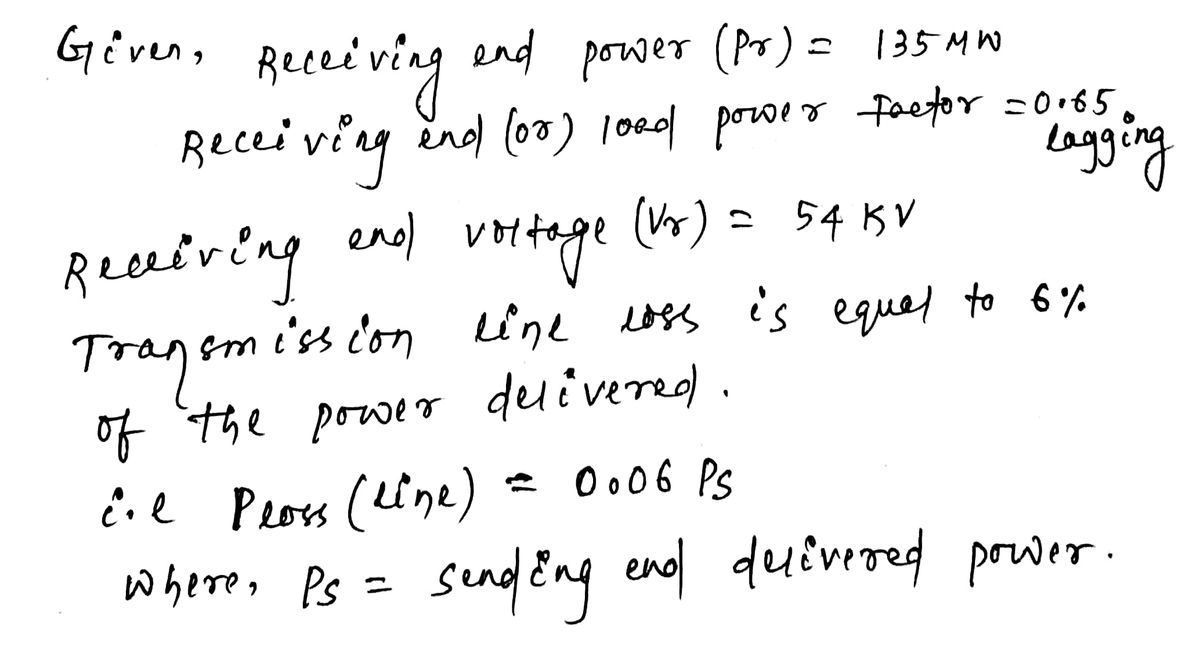 Given, Receiving end power (Pr) = 135 MW
Receiving end (or) load power factor = 0.65 lagging
Receiving end voltage (Vr) = 54 KV
Transmission line loss is equal to 6%
of the power delivered.
i.e Ploss (line) = 0.06 Ps
where, Ps = sending end delivered power.